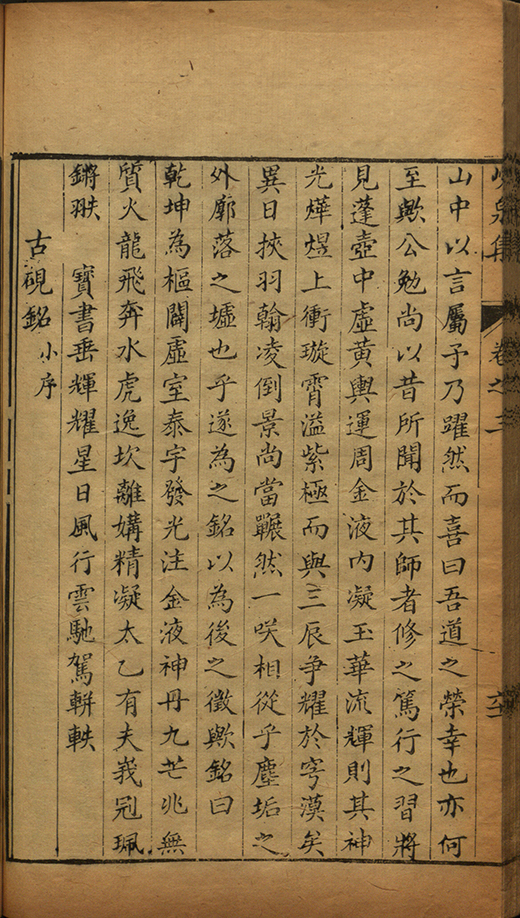 峴泉集 卷之三
山中以言屬予乃躍然而喜曰吾道之榮幸也亦何
至歟公勉尚以昔所聞於其師者修之篤行之習將
見蓬壺中虛黃輿運周金液內凝玉華流輝則其神
光燁煜上衝璇霄溢紫極而與三辰爭耀於寥漠矣
異日挾羽翰凌倒景尚當囅然一咲相從乎塵垢之
外廓落之墟也乎遂為之銘以為後之徵歟銘曰
乾坤為樞闢虛室泰宇發光注金液神丹九芒兆無
質火龍飛奔水虎逸坎離媾精凝太乙有夫峩冠珮
鏘翐 寶書垂輝耀星日風行雲馳駕軿軼
古硯銘 小序